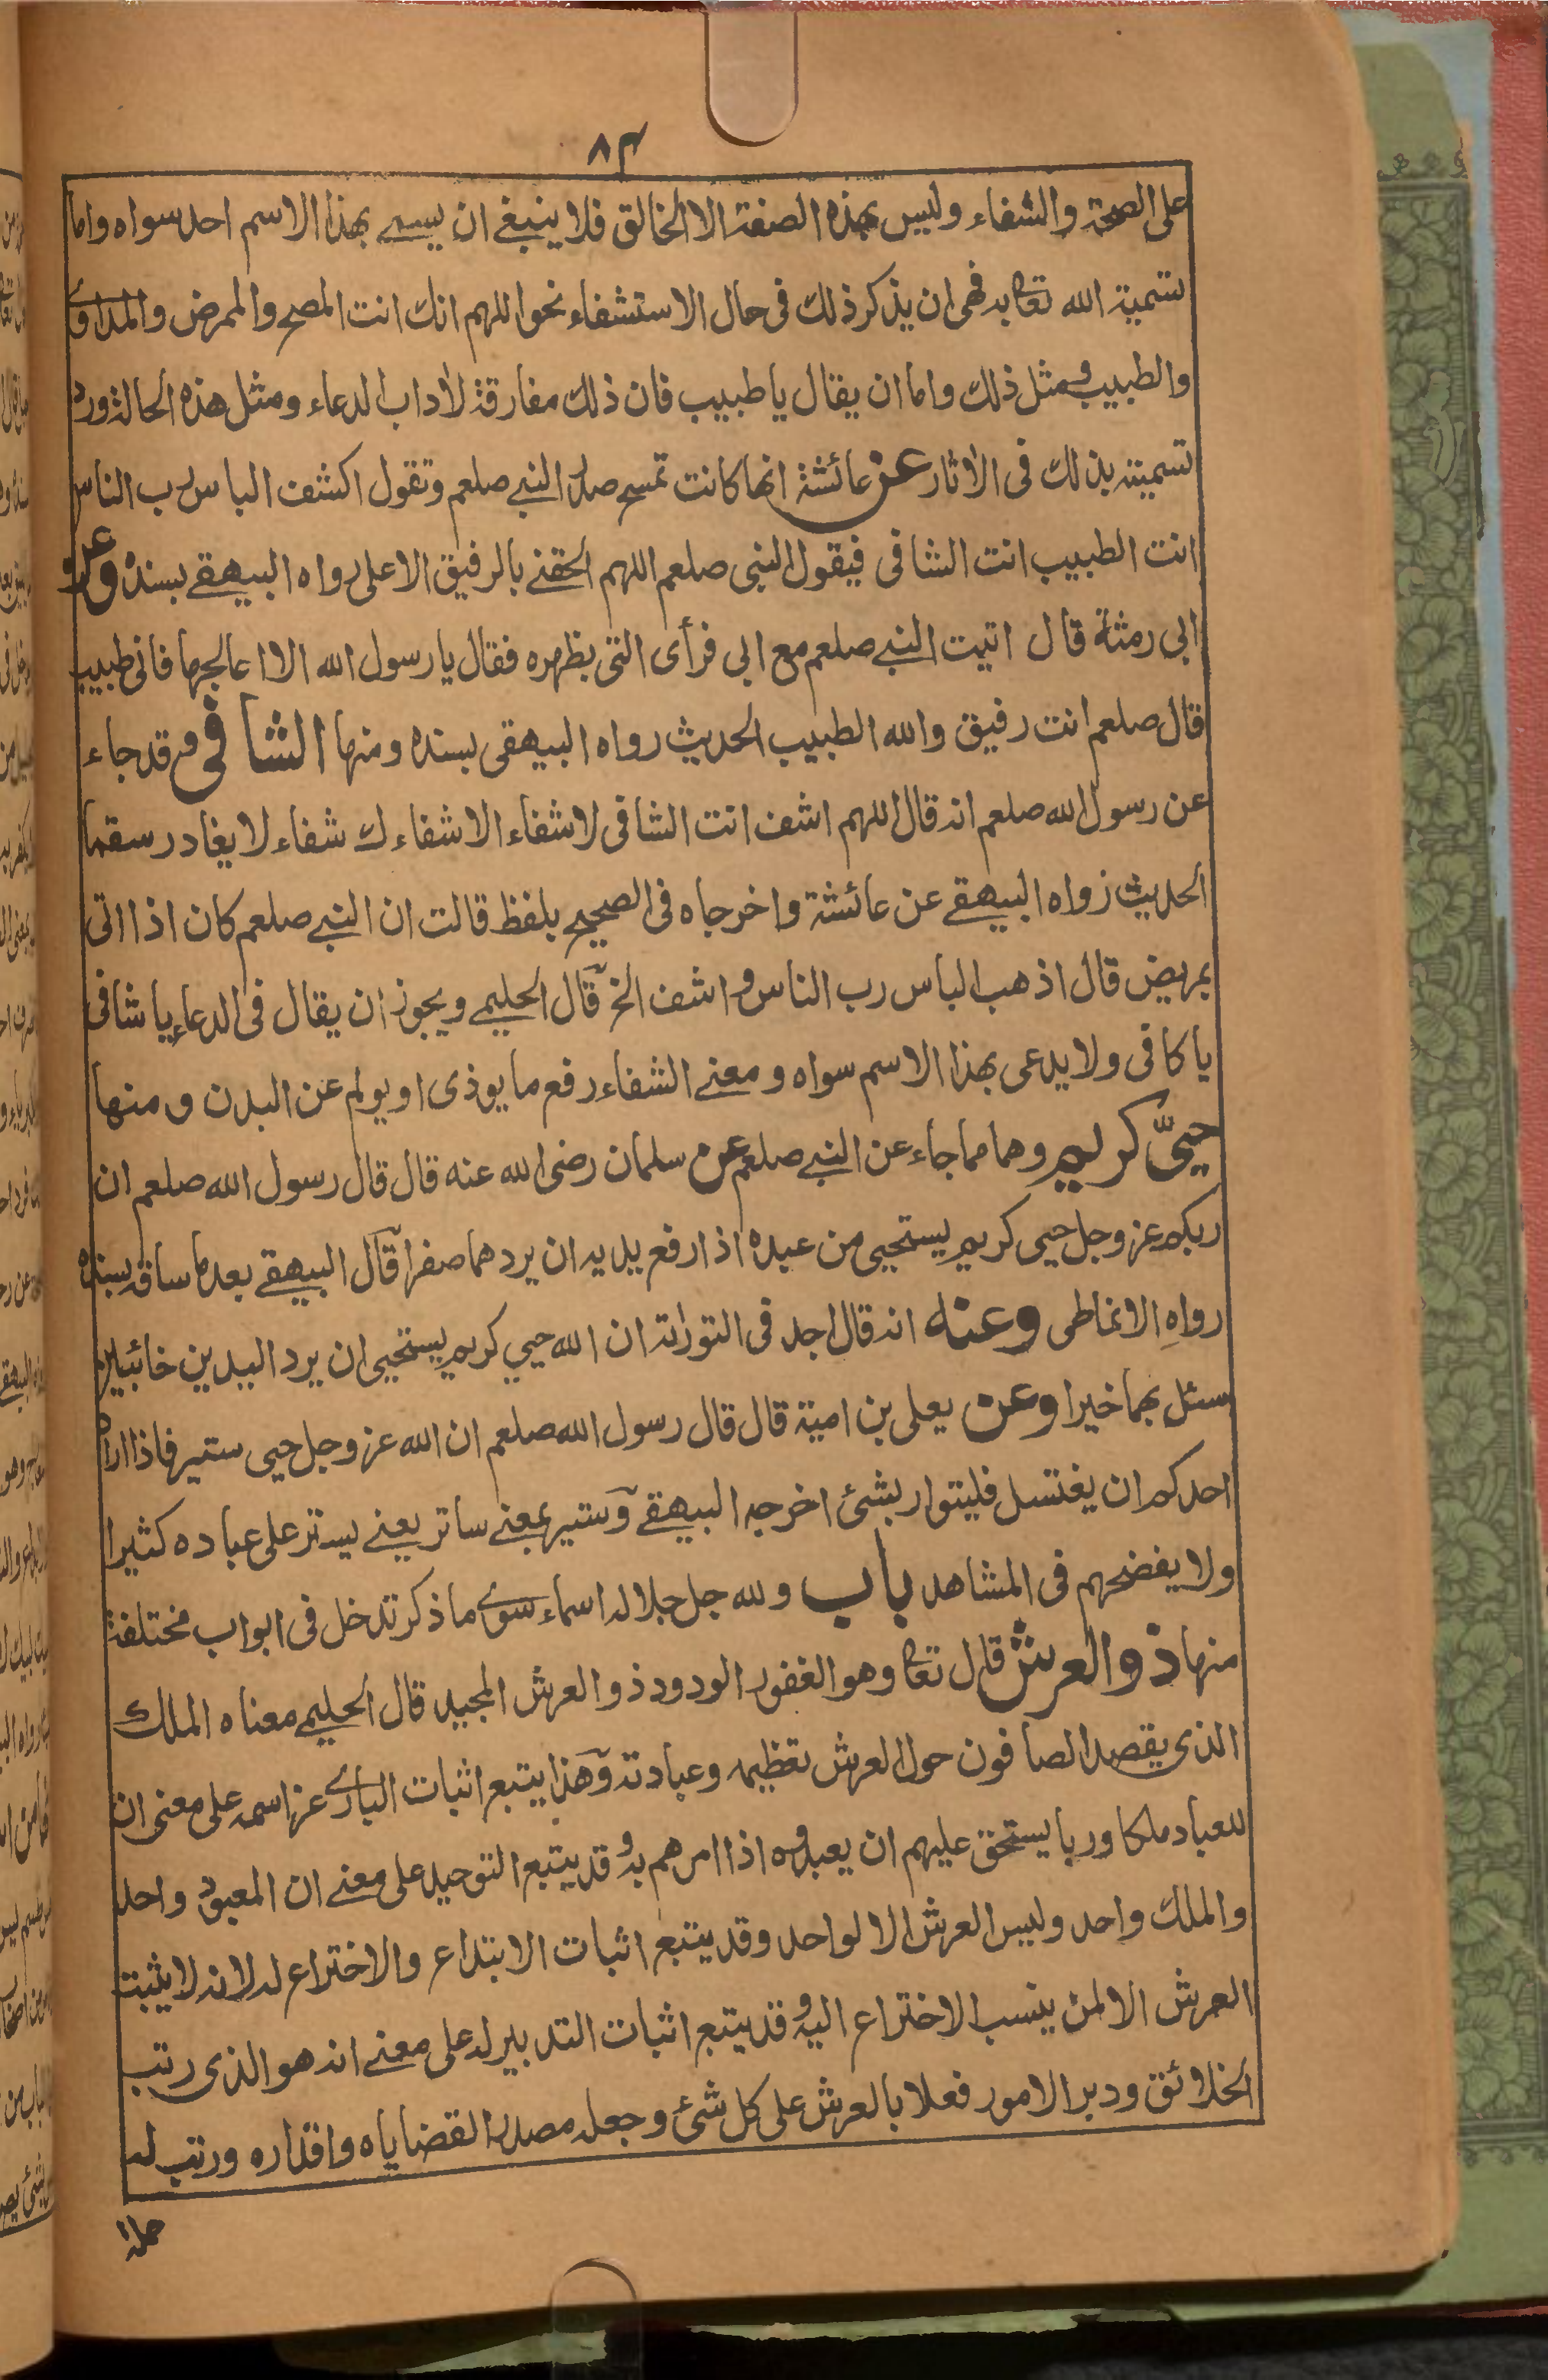 ٨٤
على الصحة والشفاء وليس بهذه الصفة الا الخالق فلا ينبغى ان يسمى بهذا الاسم احد سواه واما
تسمية الله تعا به فهى ان يذكر ذلك فى حال الاستشفاء نحو اللهم انك انت المصح والممرض والمداوى
والطبيب ومثل ذلك واما ان يقال يا طبيب فان ذلك مفارقة لاداب الدعاء ومثل هذه الحالة ورد
تسميته بذلك فى الاثار عن عائشة انها كانت تمسح صدر النبى صلعم وتقول اكشف الباس رب الناس
انت الطبيب انت الشافى فيقول النبى صلعم اللهم الحقنى بالرفيق الاعلى رواه البيهقى بسنده وعن
ابى رمثة قال اتيت النبى صلعم مع ابى فرأى التى بظهره فقال يا رسول الله الا اعالجها فانى طبيب
قال صلعم انت رفيق والله الطبيب الحديث رواه البيهقى بسنده ومنها الشافى وقد جاء
عن رسول الله صلعم انه قال اللهم اشف انت الشافى لا شفاء الا شفاءك شفاء لا يغادر سقما
الحديث رواه البيهقى عن عائشة واخرجاه فى الصحيح بلفظ قالت ان النبى صلعم كان اذا اتى
بمريض قال اذهب الباس رب الناس واشف الخ قال الحليمى ويجوز ان يقال فى الدعاء يا شافى
يا كافى ولا يدعى بهذا الاسم سواه ومعنى الشفاء رفع ما يوذى او يولم عن البدن ومنها
حيىّ كريم وهما مما جاء عن النبى صلعم عن سلمان رضى الله عنه قال قال رسول الله صلعم ان
ربكم عز وجل حيى كريم يستحيى من عبده اذا رفع يديه ان يردهما صفرا قال البيهقى بعد ما ساقه بسنده
رواه الانماطى وعنه انه قال اجد فى التوراة ان الله حيي كريم يستحيى ان يرد اليدين خائبين
سئل بهما خيرا وعن يعلى بن امية قال قال رسول الله صلعم ان الله عز وجل حيى ستير فاذا اراد
احدكم ان يغتسل فليتوار بشئ اخرجه البيهقى وستير بمعنى ساتر يعنى يستر على عباده كثيرا
ولا يفضحهم فى المشاهد باب ولله جل جلاله اسماء سوى ما ذكر تدخل فى ابواب مختلفة
منها ذو العرش قال تعا وهو الغفور الودود ذو العرش المجيد قال الحليمى معناه الملك
الذى يقصد الصافون حول العرش تعظيمه وعبادته وهذا يتبع اثبات البارى عز اسمه على معنى ان
للعباد ملكا وربا يستحق عليهم ان يعبدوه اذا امرهم به وقد يتبع التوحيد على معنى ان المعبود واحد
والملك واحد وليس العرش الا لواحد وقد يتبع اثبات الابتداع والاختراع له لانه لا يثبت
العرش الا لمن ينسب الاختراع اليه وقد يتبع اثبات التدبير له على معنى انه هو الذى رتب
الخلائق ودبر الامور فعلا بالعرش على كل شئ وجعله مصدرا لقضاياه واقداره ورتب له
حملة